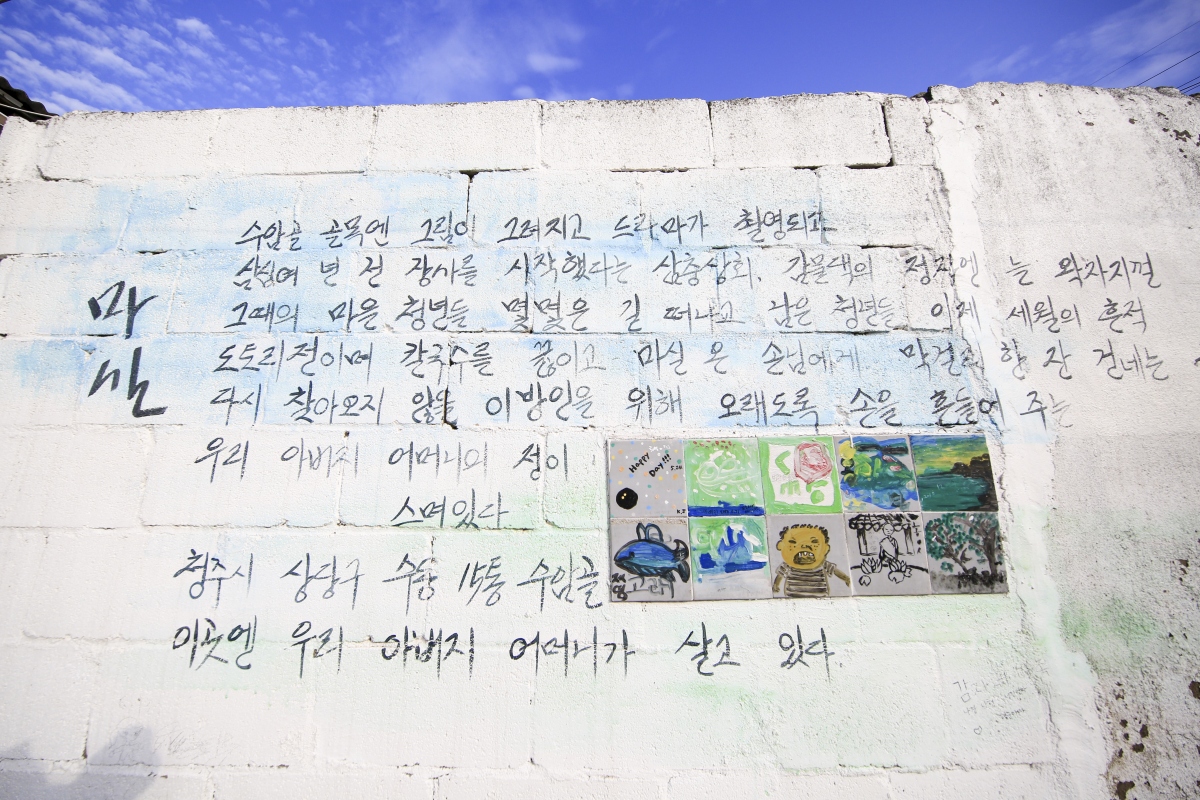 마실
수암골 골목엔 그림이 그려지고 드라마가 촬영되고
삼십여 년 전 장사를 시작했다는 삼충상회, 갈물댁의 정지엔 늘 왁자지껄
그때의 마을 청년들 몇몇은 길 떠나고 남은 청년들 이제 세월의 흔적
도토리전이며 칼국수를 끓이고 마실 온 손님에게 막걸리 한 잔 건네는
다시 찾아오지 않을 이방인을 위해 오래도록 손을 흔들어 주는
우리 아버지 어머니의 정이
스며있다
청주시 상당구 수동 15통 수암골
이곳엔 우리 아버지 어머니가 살고 있다.
HAPPY DAY!!!
5.24
고래